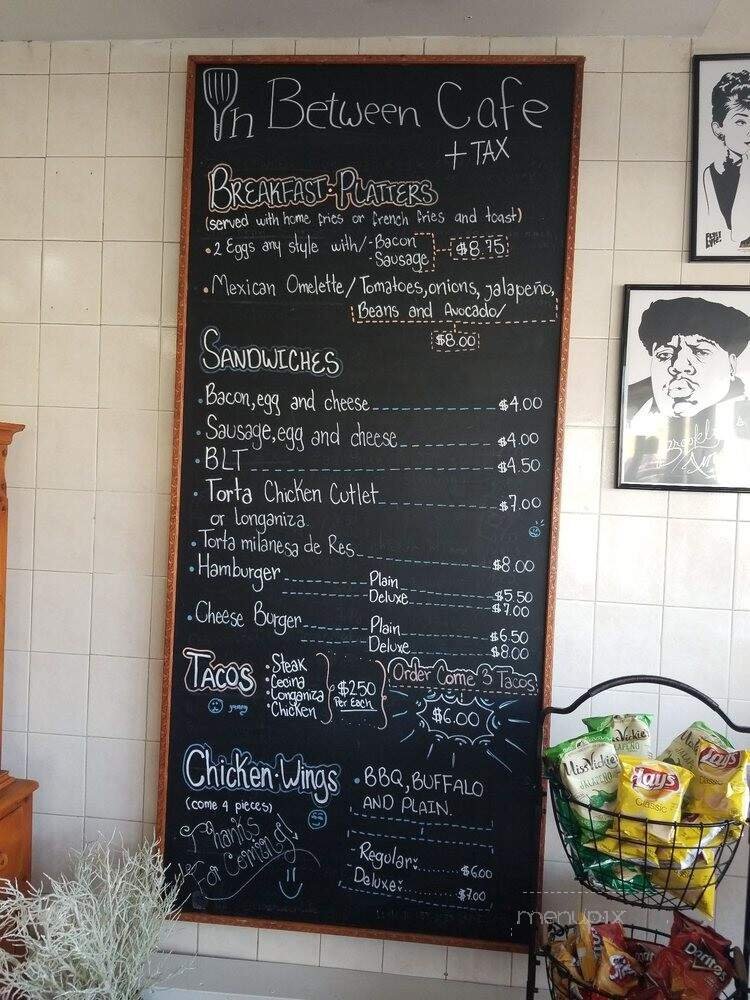 In Between Cafe
+ TAX
BREAKFAST·PLATTERS
(served with home fries or french fries and toast)
• 2 Eggs any style with/ - Bacon
- Sausage
$8.75
• Mexican Omelette / Tomatoes, onions, jalapeño,
Beans and Avocado/
$8.00
SANDWICHES
• Bacon, egg and cheese $4.00
• Sausage, egg and cheese $4.00
• BLT $4.50
• Torta Chicken Cutlet $7.00
or longaniza
• Torta milanesa de Res $8.00
• Hamburger Plain $5.50
Deluxe $7.00
• Cheese Burger Plain $6.50
Deluxe $8.00
TACOS
yummy
• Steak
• Cecina
• Longaniza
• Chicken
$2.50
Per Each
Order Come 3 Tacos
$6.00
Chicken·Wings
(come 4 pieces)
• BBQ, BUFFALO
AND PLAIN.
- Regular $6.00
Deluxe $7.00
Thanks
For Coming!
MissVickie's
JALAPEÑO
MissVickie's
JALAPEÑO
Lays
Classic
Lay's
Classic
Doritos
menupix